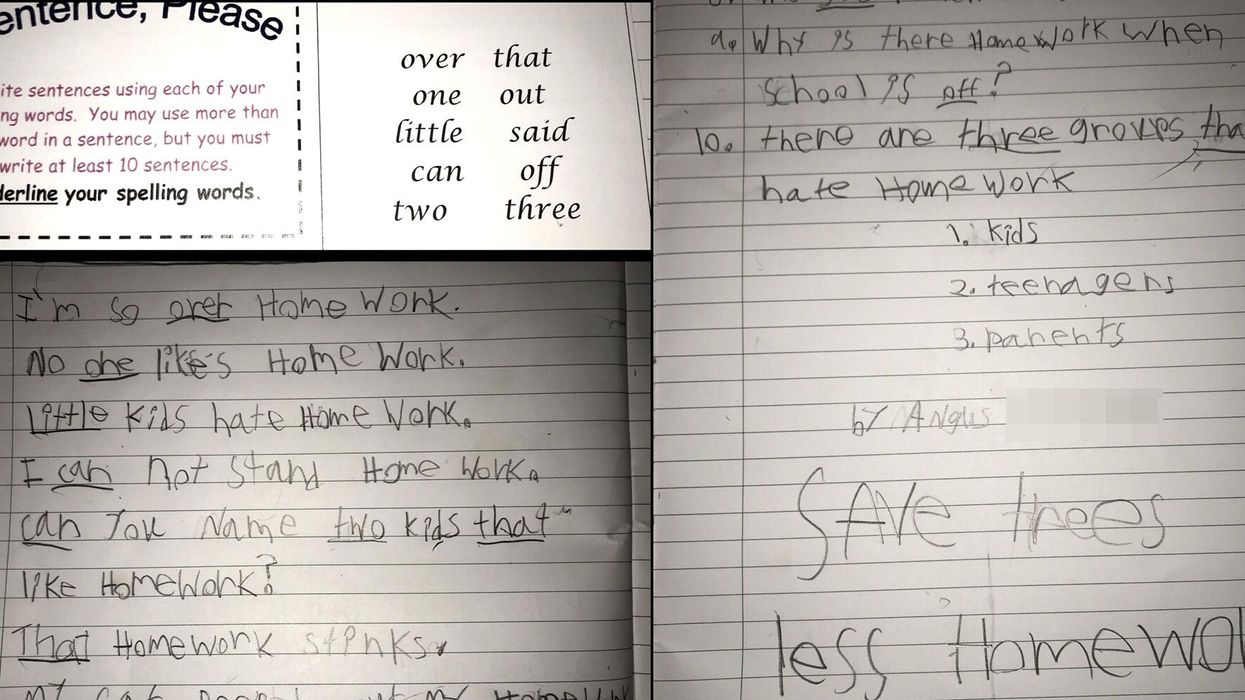 entence, Please
ite sentences using each of your
ng words. You may use more than
word in a sentence, but you must
write at least 10 sentences.
derline your spelling words.
over that
one out
little said
can off
two three
I'm so over Home Work.
No one like's Home Work.
Little kids hate Home Work.
I can not stand Home Work.
can you Name two kids that
like HomeWork?
That Homework stinks.
my
a. Why is there Home Work when
school is off?
10. there are three groves tha
hate Home Work
1. kids
2. teenagers
3. parents
by Angus
SAVe trees
less Homewo